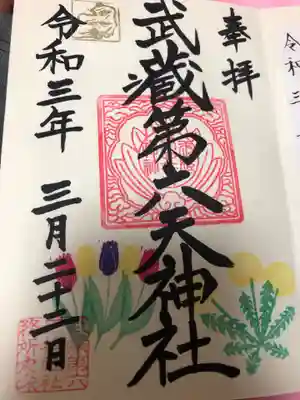 奉拝
武蔵第六天神社
令和三年 三月二十二日
令和三